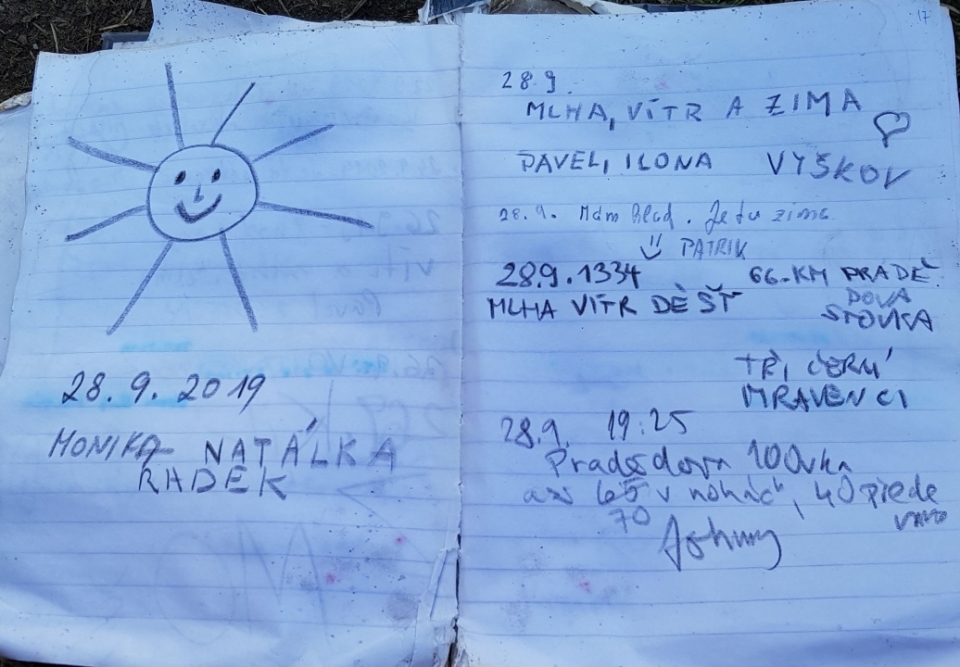 28. 9. 2019
MONIKA NATÁLKA
RADEK
17
28.9.
MLHA, VÍTR A ZIMA
PAVEL, ILONA VYŠKOV
28.9. Mám hlad. Je tu zima.
PATRIK
28.9.1334 66.KM PRADĚ
DOVA
MLHA VÍTR DÉŠŤ STOVKA
TŘI ČERNÍ
MRAVENCI
28.9. 19:25
Pradědova 100vka
65 v nohách, 40 přede
70
Johnny